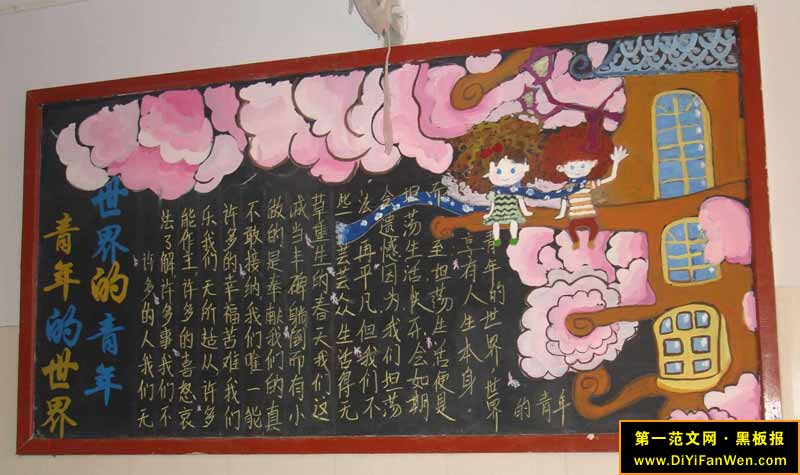 青年的世界
世界的青年
许多的人我们无
法了解许多事我们不
能作主许多的喜怒哀
乐我们无所趋从许多
许多的幸福苦难我们
不敢接纳我们唯一能
做的是奉献我们的真
诚当丰碑躺倒而有小
草重生的春天我们这
些芸芸众生活得无
法再平凡但我们不
会遗憾因为我们坦荡
坦荡生活快乐会如期
而至坦荡生活便是
享有人生本身.
青年的世界,世界
的青年
第一范文网·黑板报
www.DiYiFanWen.com